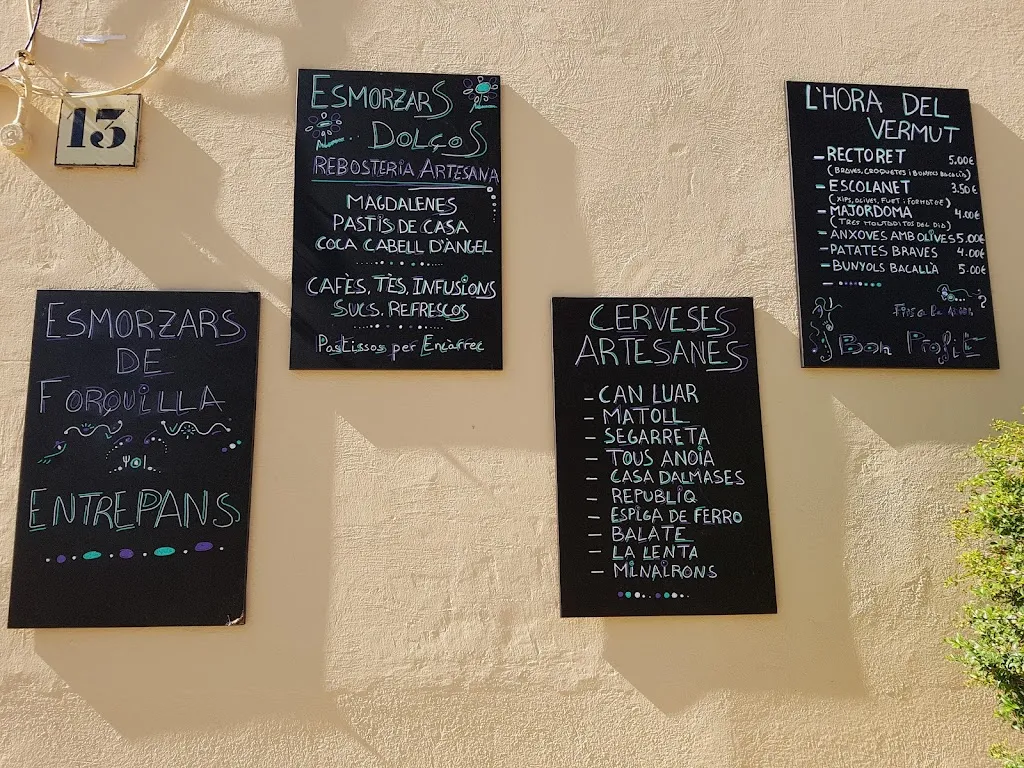 13
ESMORZARS
DE
FORQUILLA
ENTREPANS
ESMORZARS
DOLÇOS
REBOSTERIA ARTESANA
MAGDALENES
PASTÍS DE CASA
COCA CABELL D'ÀNGEL
CAFÈS, TÈS, INFUSIONS
SUCS, REFRESCOS
Pastissos per Encàrrec
CERVESES
ARTESANES
- CAN LUAR
- MATOLL
- SEGARRETA
- TOUS ANOIA
- CASA DALMASES
- REPUBLIQ
- ESPIGA DE FERRO
- BALATE
- LA LENTA
- MINAIRONS
L'HORA DEL
VERMUT
- RECTORET 5.00€
(BRAVES, CROQUETES I BUNYOLS BACALLÀ)
- ESCOLANET 3.50€
(XIPS, OLIVES, FUET I FORMATGE)
- MAJORDOMA 4.00€
(TRES MONTADITOS DEL DIA)
- ANXOVES AMB OLIVES 5.00€
- PATATES BRAVES 4.00€
- BUNYOLS BACALLÀ 5.00€
?
Bon Profit